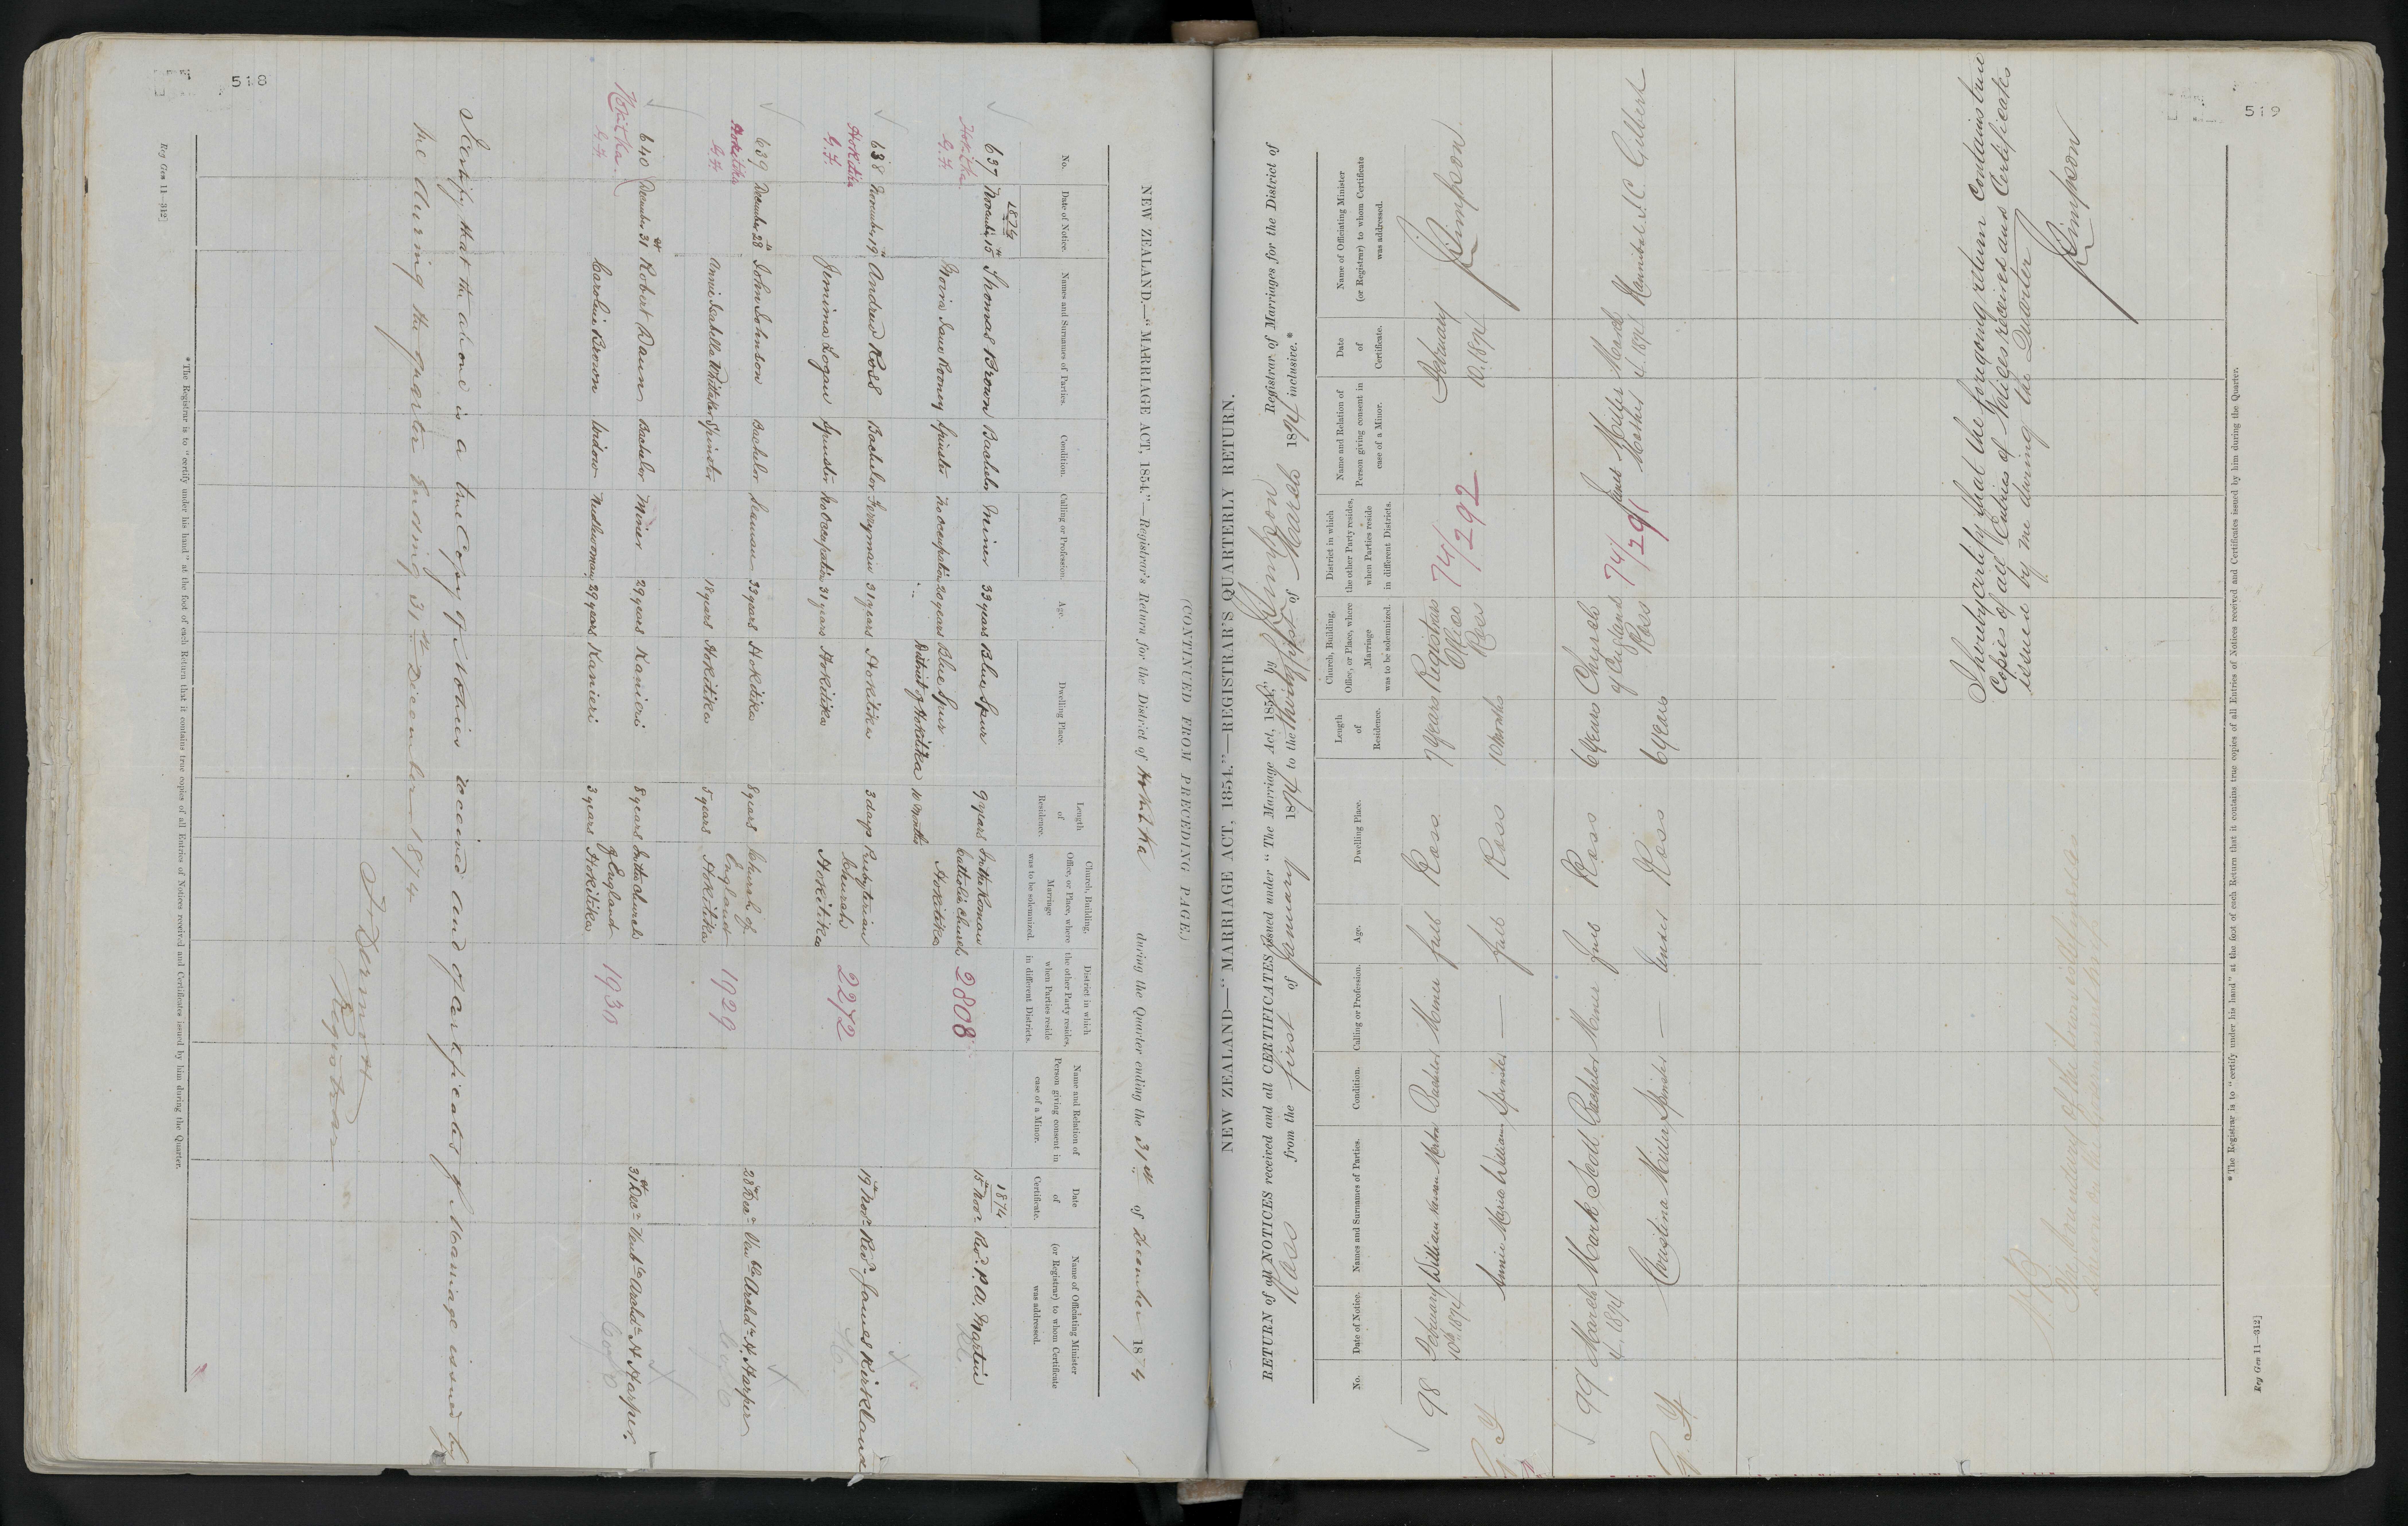 518
(CONTINUED FROM PRECEDING PAGE.)
NEW ZEALAND.—"MARRIAGE ACT, 1854."—Registrar's Return for the District of Hokitika during the Quarter ending the 31st of December 1874
No. Date of Notice. Names and Surnames of Parties. Condition. Calling or Profession. Age. Dwelling Place. Length of Residence. Church, Building, Office, or Place, where Marriage was to be solemnized. District in which the other Party resides, when Parties reside in different Districts. Name and Relation of Person giving consent in case of a Minor. Date of Certificate. Name of Officiating Minister (or Registrar) to whom Certificate was addressed.
1874 1874
637 November 15th Thomas Brown Bachelor Miner 33 years Blue Spur 9 years In the Roman Catholic Church Hokitika 2808 15th Novr. Revd. P. A. Martin
Hokitika G.F. Jane Rooney Spinster No occupation 20 years Blue Spur District of Hokitika 10 months
638 November 19th Andrew Ross Bachelor Ferryman 31 years Hokitika 3 days Presbyterian Church Hokitika 2272 19th Novr. Revd. James Kirkland
Hokitika G.F. Jemima Logan Spinster No occupation 31 years Hokitika
639 December 28th John Johnson Bachelor Seaman 33 years Hokitika 8 years Church of England Hokitika 1929 28th Decr. Venble Archdn. H. Harper
Hokitika G.F. Annie Isabella Whitaker Spinster 18 years Hokitika 5 years
C of E
640 December 31st Robert Daun Bachelor Miner 29 years Kanieri 8 years In the Church of England Hokitika 1930 31st Decr. Venble Archdn. H. Harper.
Hokitika G.F. Caroline Brown Widow Needlewoman 29 years Kanieri 3 years
C of E
I certify that the above is a true Copy of Notices received and of Certificates of Marriage issued by
me during the quarter Ending 31st December 1874
Registrar
*The Registrar is to "certify under his hand" at the foot of each Return that it contains true copies of all Entries of Notices received and Certificates issued by him during the Quarter.
Reg Gen 11—312]
519
NEW ZEALAND—"MARRIAGE ACT, 1854."—REGISTRAR'S QUARTERLY RETURN.
RETURN of all NOTICES received and all CERTIFICATES issued under "The Marriage Act, 1854," by Simpson Registrar of Marriages for the District of
Ross from the first of January 1874 to the thirty first of March 1874 inclusive.*
No. Date of Notice. Names and Surnames of Parties. Condition. Calling or Profession. Age. Dwelling Place. Length of Residence. Church, Building, Office, or Place, where Marriage was to be solemnized. District in which the other Party resides, when Parties reside in different Districts. Name and Relation of Person giving consent in case of a Minor. Date of Certificate. Name of Officiating Minister (or Registrar) to whom Certificate was addressed.
98 February 10th 1874 William Bachelor Miner full Ross 7 years Registrars Office Ross 74/292 February 10. 1874 Simpson
Annie Maria Williams Spinster — full Ross 10 months
99 March 4. 1874 Mark Scott Bachelor Miner full Ross 6 years Church of England Ross 74/291 Janet Miller Mother March 4. 1874 Hannibal J. C. Gilbert
Christina Miller Spinster — under Ross 6 years
I hereby certify that the foregoing return Contains true
Copies of all Entries of Notices received and Certificates
issued by me during the Quarter
Simpson
NB
The boundary of the
*The Registrar is to "certify under his hand" at the foot of each Return that it contains true copies of all Entries of Notices received and Certificates issued by him during the Quarter.
Reg Gen 11—312]